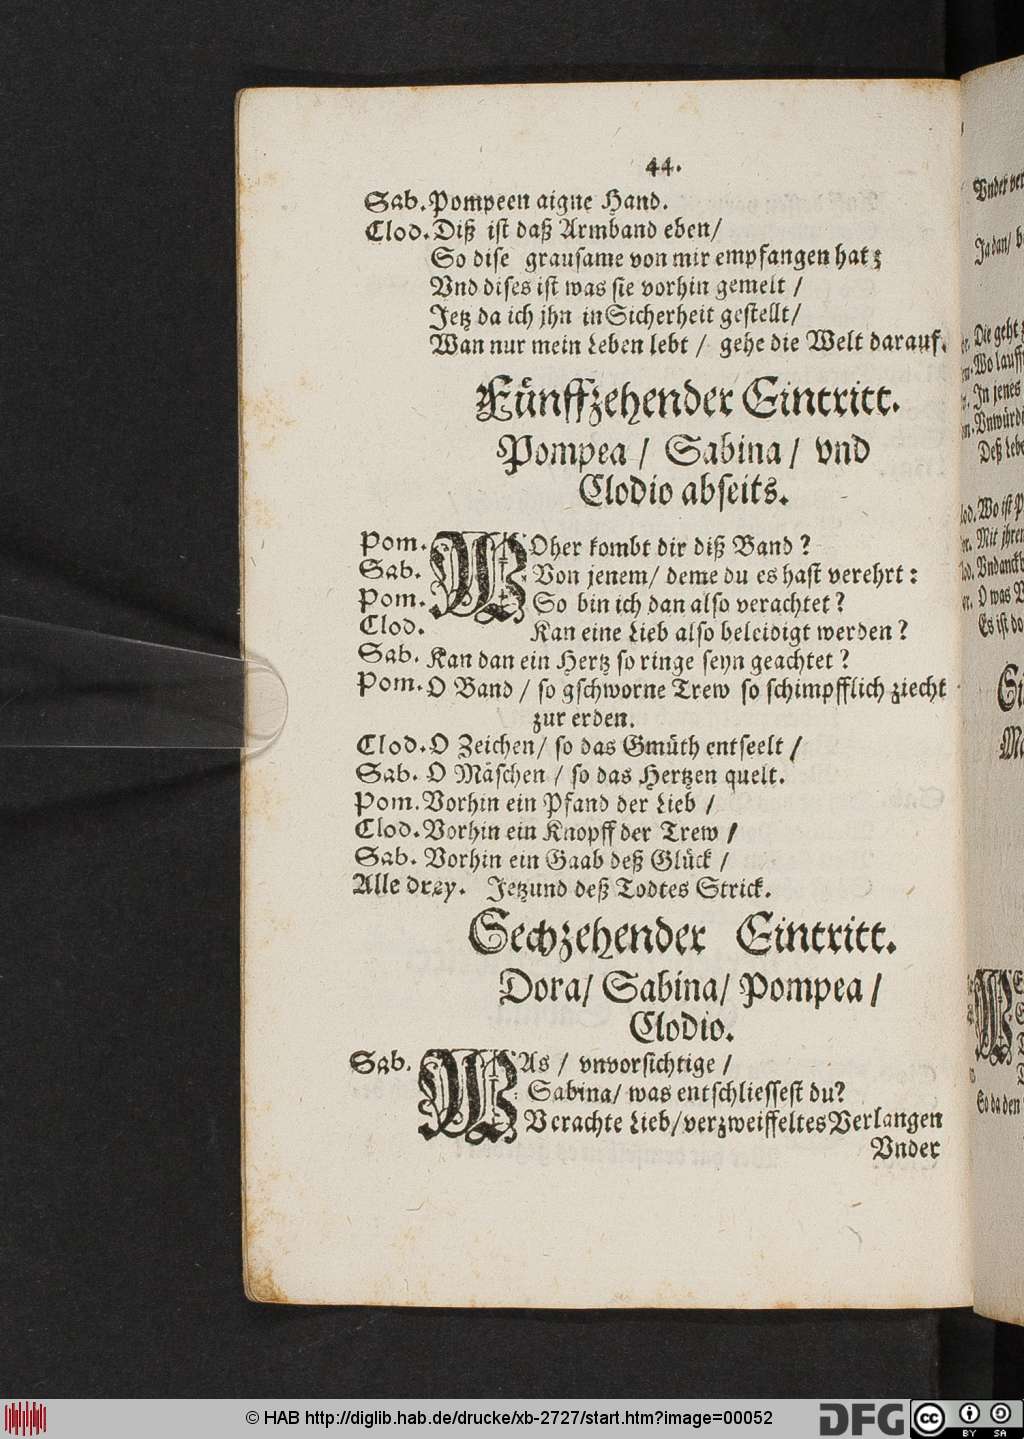 44.
Sab. Pompeen aigne Hand.
Clod. Diß ist daß Armband eben/
So dise grausame von mir empfangen hat;
Vnd dises ist was sie vorhin gemelt /
Jetz da ich jhn in Sicherheit gestellt/
Wan nur mein Leben lebt / gehe die Welt darauf.
Fünffzehender Eintritt.
Pompea / Sabina / vnd
Clodio abseits.
Pom. WOher kombt dir diß Band ?
Sab. Von jenem/ deme du es hast verehrt :
Pom. So bin ich dan also verachtet ?
Clod. Kan eine Lieb also beleidigt werden ?
Sab. Kan dan ein Hertz so ringe seyn geachtet ?
Pom. O Band / so gschworne Trew so schimpfflich ziecht
zur erden.
Clod. O Zeichen/ so das Gmüth entseelt /
Sab. O Mäschen / so das Hertzen quelt.
Pom. Vorhin ein Pfand der Lieb /
Clod. Vorhin ein Knopff der Trew /
Sab. Vorhin ein Gaab deß Glück /
Alle drey. Jetzund deß Todtes Strick.
Sechzehender Eintritt.
Dora/ Sabina/ Pompea /
Clodio.
Sab. WAs / vnvorsichtige /
Sabina/ was entschliessest du?
Verachte Lieb/ verzweiffeltes Verlangen
Vnder
Ja dan/
Die geht
Wo lauff
In jenes
Deß Lebe
Wo ist
Mit jhren
O was
Es ist do
So da den
© HAB http://diglib.hab.de/drucke/xb-2727/start.htm?image=00052
DFG
cc BY SA